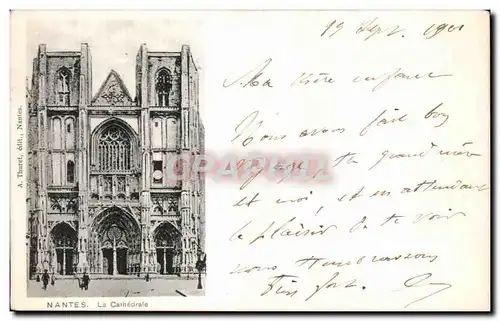 19 Sept. 1901
Ma chère enfant
Nous avons fait bon
voyage, ta grand mère
et moi, et en attendant
le plaisir de te voir
nous t'embrassons
très fort.
A. Thuret, édit., Nantes.
NANTES. La Cathédrale